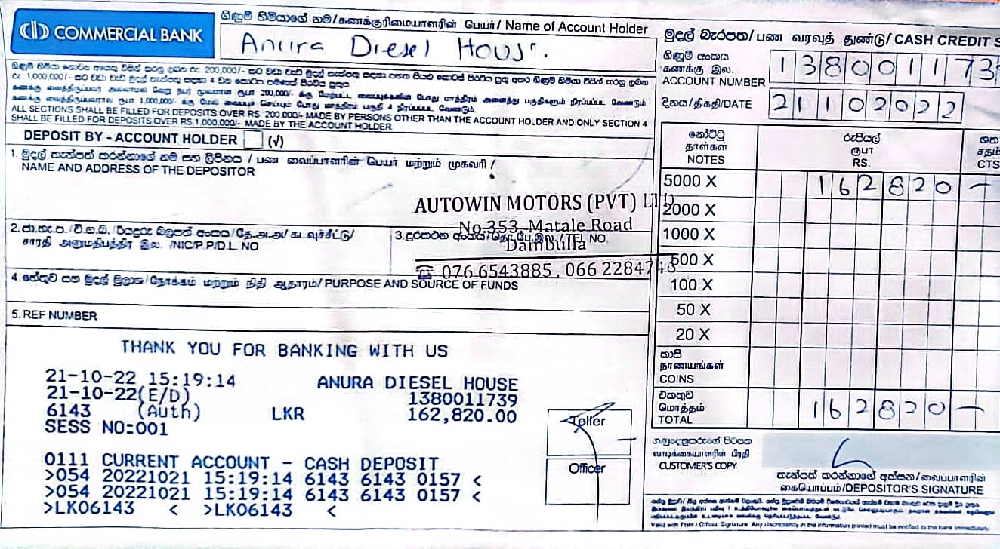 COMMERCIAL BANK
ගිණුම් හිමියාගේ නම/கணக்குரிமையாளரின் பெயர்/ Name of Account Holder
Anura Diesel House.
මුදල් බැරපත/ பண வரவுத் துண்டு/ CASH CREDIT S
ගිණුම් අංකය
கணக்கு இல.
ACCOUNT NUMBER 138001173
දිනය/திகதி/DATE 21102022
ALL SECTIONS SHALL BE FILLED FOR DEPOSITS OVER RS. 200,000/- MADE BY PERSONS OTHER THAN THE ACCOUNT HOLDER AND ONLY SECTION 4
SHALL BE FILLED FOR DEPOSITS OVER RS.1,000,000/- MADE BY THE ACCOUNT HOLDER
DEPOSIT BY - ACCOUNT HOLDER (√)
1. මුදල් තැන්පත් කරන්නාගේ නම සහ ලිපිනය / பண வைப்பாளரின் பெயர் மற்றும் முகவரி /
NAME AND ADDRESS OF THE DEPOSITOR
නෝට්ටු
தாள்கள்
NOTES
රුපියල්
ரூபா
RS.
ශත
சதம்
CTS
5000 X 162820 —
2000 X
1000 X
500 X
100 X
50 X
20 X
කාසි
நாணயங்கள்
COINS
එකතුව
மொத்தம்
TOTAL 162820 —
AUTOWIN MOTORS (PVT) LTD
No 353, Matale Road
Dambulla
☎ 076 6543885, 066 2284748
/NIC/P.P/D.L NO
4. හේතුව සහ මුදල් මූලාශ්‍ර/நோக்கம் மற்றும் நிதி ஆதாரம்/ PURPOSE AND SOURCE OF FUNDS
5. REF NUMBER
THANK YOU FOR BANKING WITH US
21-10-22 15:19:14 ANURA DIESEL HOUSE
21-10-22(E/D) 1380011739
6143 (Auth) LKR 162,820.00
SESS NO:001
0111 CURRENT ACCOUNT - CASH DEPOSIT
>054 20221021 15:19:14 6143 6143 0157 <
>054 20221021 15:19:14 6143 6143 0157 <
>LK06143 < >LK06143 <
Teller
Officer
ගනුදෙනුකරුගේ පිටපත
வாடிக்கையாளரின் பிரதி
CUSTOMER'S COPY
තැන්පත් කරන්නාගේ අත්සන/வைப்பாளரின்
கையொப்பம்/DEPOSITOR'S SIGNATURE